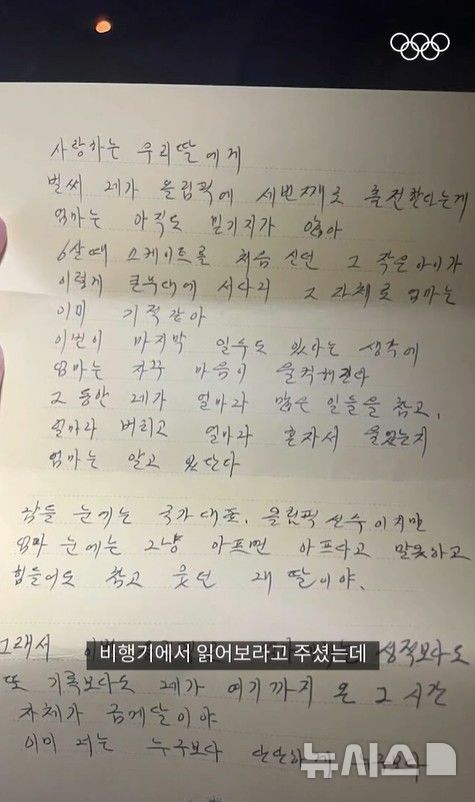 사랑하는 우리딸에게
벌써 네가 올림픽에 세번째로 출전한다는게
엄마는 아직도 믿기지가 않아
6살때 스케이트를 처음 신던 그 작은아이가
이렇게 큰무대에 서다니 그 자체로 엄마는
이미 기적같아
이번이 마지막 일수도 있다는 생각에
엄마는 자꾸 마음이 울컥해진다
그 동안 네가 얼마나 많은 일들을 참고,
얼마나 버티고 얼마나 혼자서 울었는지
엄마는 알고 있단다
남들 눈에는 국가대표, 올림픽 선수이지만
엄마 눈에는 그냥 아프면 아프다고 말못하고
힘들어도 참고 웃던 내 딸이야.
그래서 이번 성적보다도
비행기에서 읽어보라고 주셨는데
또 기록보다도 네가 여기까지 온 그 시간
자체가 금메달이야
이미 너는 누구보다 단단하
뉴시스